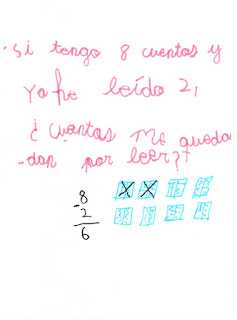 ·Si tengo 8 cuentos y
ya he leído 2,
¿cuantos me queda
-dan por leer?
8
-2
6